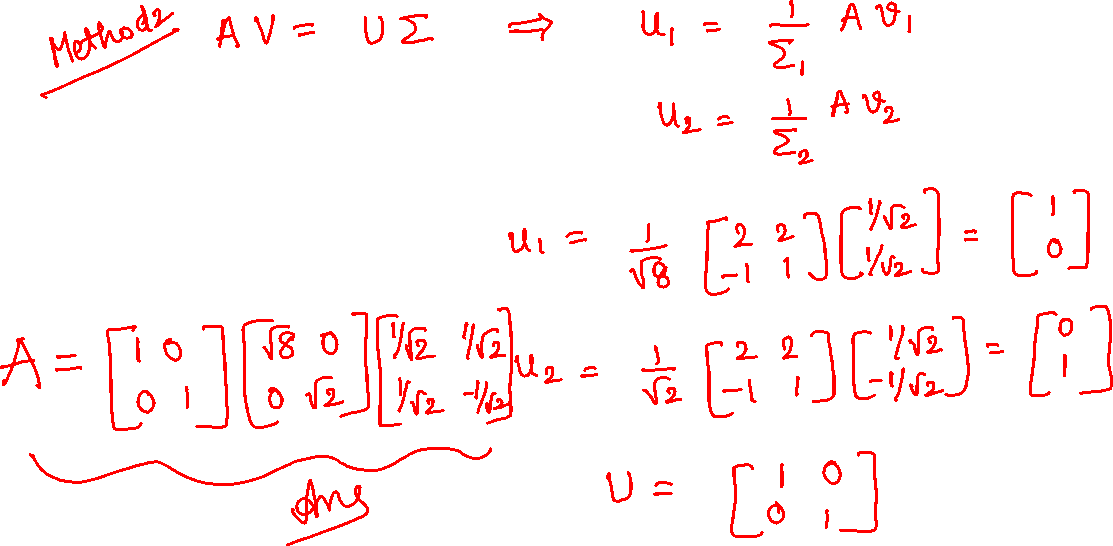 Method2 A V = U Σ ⇒ u₁ = 1/Σ₁ A v₁
u₂ = 1/Σ₂ A v₂
u₁ = 1/√8 [2 2; -1 1] [1/√2; 1/√2] = [1; 0]
A = [1 0; 0 1] [√8 0; 0 √2] [1/√2 1/√2; 1/√2 -1/√2]
u₂ = 1/√2 [2 2; -1 1] [1/√2; -1/√2] = [0; 1]
Ans
U = [1 0; 0 1]